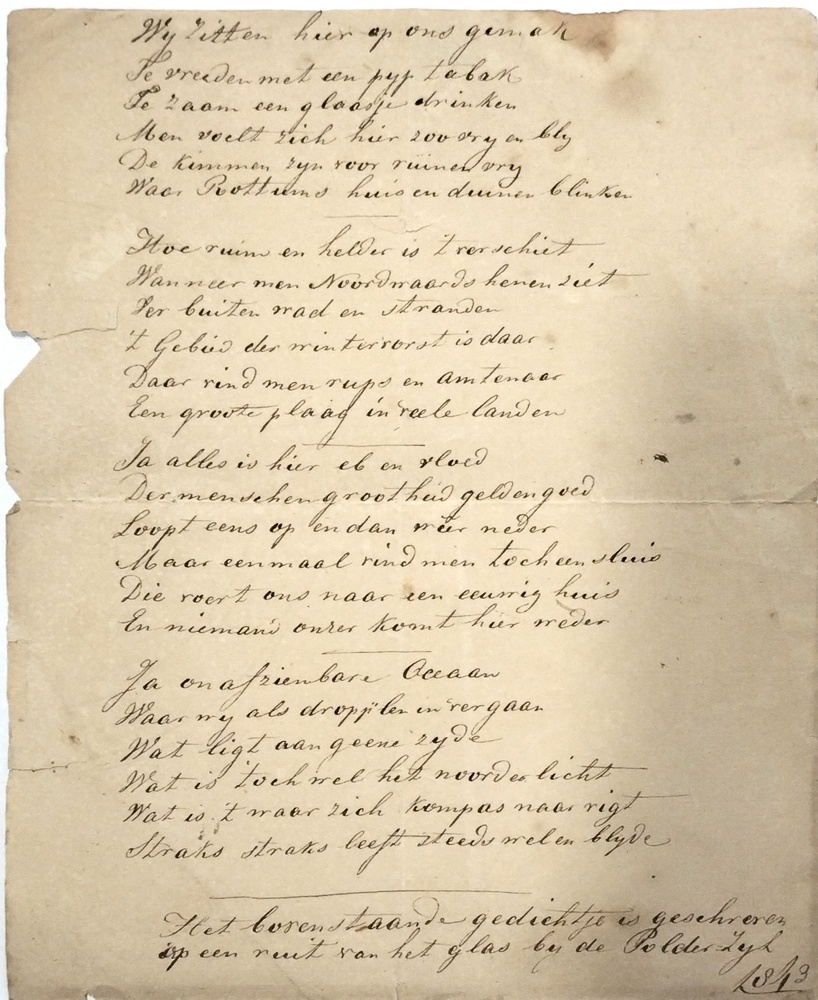 Wy zitten hier op ons gemak
Te vreeden met een pyp tabak
Te zaam een glaasje drinken
Men voelt zich hier zoo vry en bly
De kimmen zyn voor ruimen vry
Waar Rottums huis en duinen blinken
Hoe ruim en helder is 't verschiet
Wanneer men Noordwaards henen ziet
Ver buiten wad en stranden
't Gebied der wintervorst is daar
Daar vind men rups en amtenaar
Een groote plaag in veele landen
Ja alles is hier eb en vloed
Der menschen grootheid geld en goed
Loopt eens op en dan weer neder
Maar eenmaal vind men toch een sluis
Die voert ons naar een eeuwig huis
En niemand onzer komt hier weder
Ja onafzienbare Oceaan
Waar wy als dropplen in vergaan
Wat ligt aan geene zyde
Wat is toch wel het noorderlicht
Wat is 't waar zich kompas naar rigt
Straks straks leeft steeds wel en blyde
Het bovenstaande gedichtje is geschreven
op een ruit van het glas by de Polder-Zyl
1843